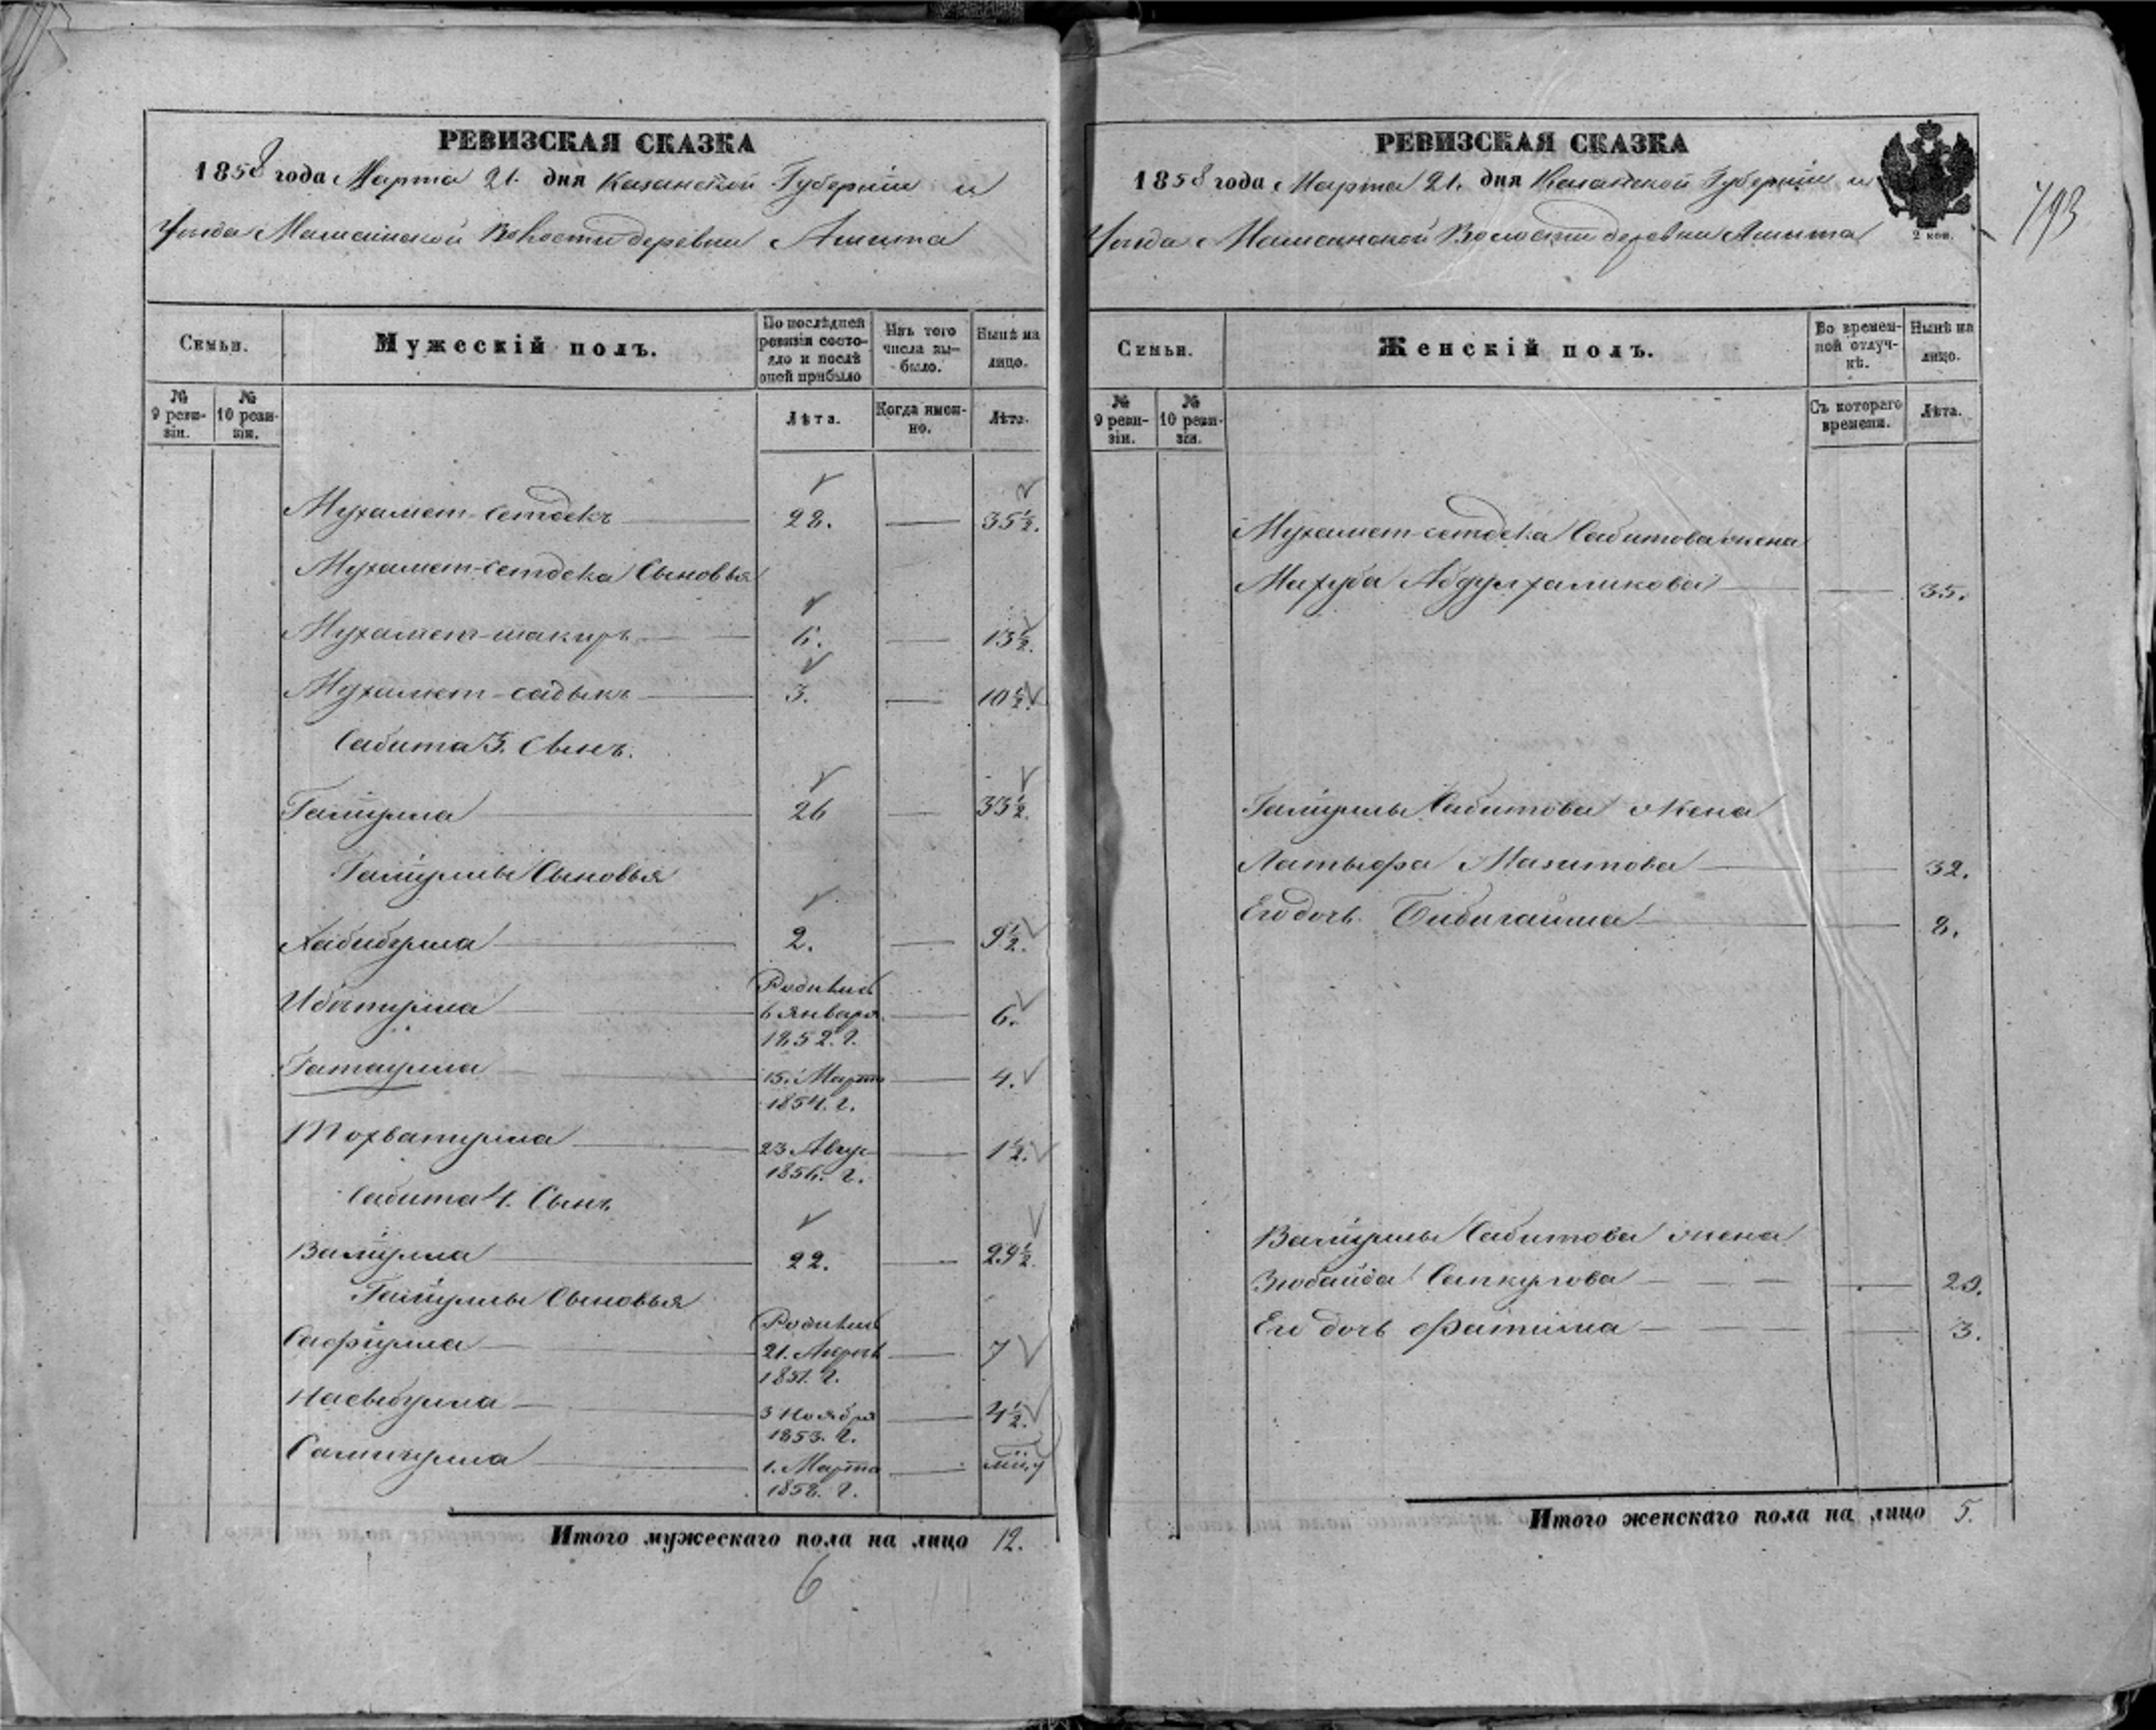 РЕВИЗСКАЯ СКАЗКА
1858 года Марта 21. дня Казанской Губернии и
Уезда Мамсинской Волости деревни Ашита
Семьи.
Мужескій полъ.
По послѣдней ревизіи состояло и послѣ оной прибыло
Изъ того числа выбыло.
Нынѣ на лицо.
№ 9 ревизіи.
№ 10 ревизіи.
Лѣта.
Когда именно.
Лѣта.
Мухамет-сетдекъ 28. 35½.
Мухамет-сетдека Сыновья
Мухамет-шакиръ 6. 13½.
Мухамет-садыкъ 3. 10½.
Сабита 3. Сынъ.
Галiулла 26 33½.
Галiуллы Сыновья
Хабибулла 2. 9½.
Ибятулла Родился 6 Января 1852. г. 6.
Гатаулла 15. Марта 1854. г. 4.
Тохватулла 23 Авгус 1856. г. 1½.
Сабита 4. Сынъ
Валiулла 22. 29½.
Галiуллы Сыновья
Сафiулла Родился 21. Апрель 1851. г. 7
Насыбулла 3 Ноября 1853. г. 4½.
Салихулла 1. Марта 1858. г.
Итого мужескаго пола на лицо 12.
6
РЕВИЗСКАЯ СКАЗКА
1858 года Марта 21. дня Казанской Губернии и
Уезда Мамсинской Волости деревни Ашита
2 коп.
793
Семьи.
Женскій полъ.
Во временной отлучкѣ.
Нынѣ на лицо.
№ 9 ревизіи.
№ 10 ревизіи.
Съ котораго времени.
Лѣта.
Мухамет-сетдека Сабитова жена
Махуба Абдулхаликова 35.
Галiуллы Сабитова Жена
Латыфа Мазитова 32.
Его дочь Бибигайша 8.
Валiуллы Сабитова жена
Зюбайда Сапкулова 29.
Его дочь Фатiма 3.
Итого женскаго пола на лицо 5.